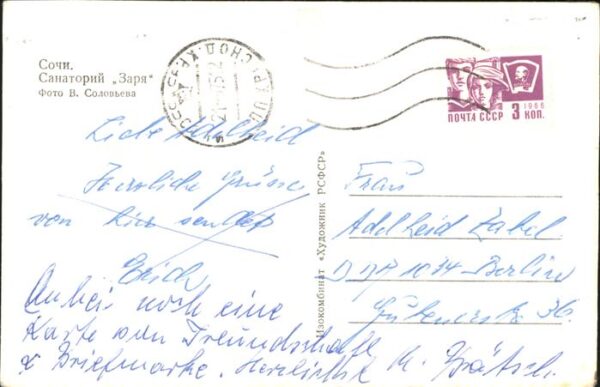 Сочи.
Санаторий „Заря“
Фото В. Соловьева
1966
ПОЧТА СССР 3 КОП.
Liebe Adelheid
Herzliche Grüsse
von hier sendet
Erich
Anbei noch eine
Karte von Freundschaft
x Briefmarke. Herzlichst M.
Изокомбинат «Художник РСФСР»
Frau
Adelheid Zabel
DDR 1034 - Berlin
Gubenerstr 36.